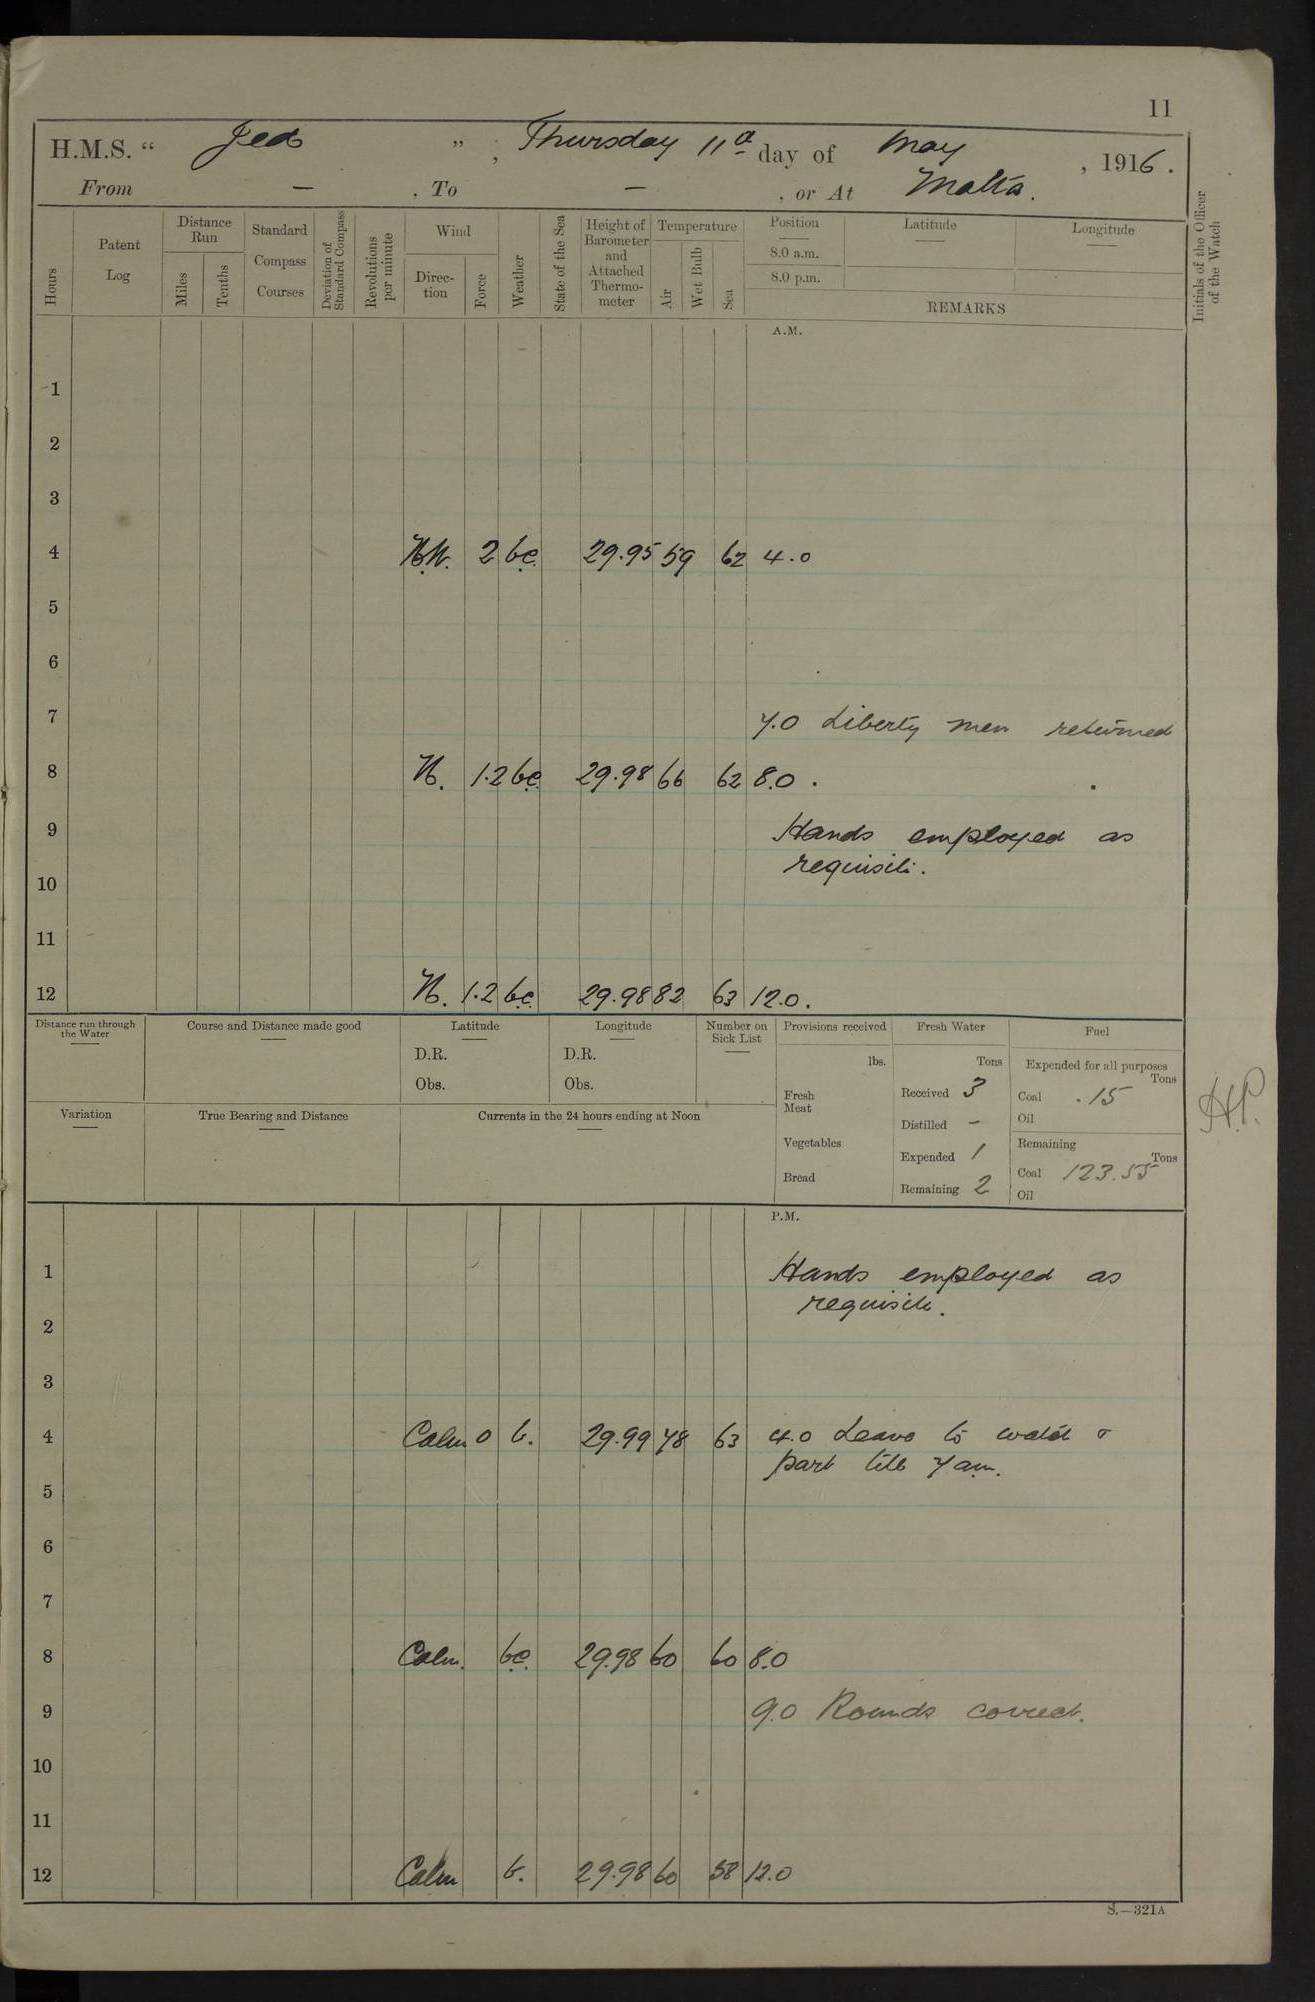 11
H.M.S. “ Jed ” , Thursday 11th day of May , 1916.
From — , To — , or At Malta.
Hours
Patent Log
Distance Run
Miles
Tenths
Standard Compass Courses
Deviation of Standard Compass
Revolutions per minute
Wind
Direction
Force
Weather
State of the Sea
Height of Barometer and Attached Thermometer
Temperature
Air
Wet Bulb
Sea
Position
8.0 a.m.
8.0 p.m.
Latitude
Longitude
REMARKS
Initials of the Officer of the Watch
A.M.
1
2
3
4 N.W. 2 bc. 29.95 59 62 4.0
5
6
7 7.0 Liberty men returned
8 N. 1.2 bc. 29.98 66 62 8.0 .
9 Hands employed as
requisite.
10
11
12 N. 1.2 bc. 29.98 82 63 12.0.
Distance run through the Water
Course and Distance made good
Latitude
D.R.
Obs.
Longitude
D.R.
Obs.
Number on Sick List
Provisions received
lbs.
Fresh Meat
Vegetables
Bread
Fresh Water
Tons
Received 3
Distilled –
Expended 1
Remaining 2
Fuel
Expended for all purposes
Tons
Coal .15
Oil
Remaining
Tons
Coal 123.55
Oil
H.P.
Variation
True Bearing and Distance
Currents in the 24 hours ending at Noon
P.M.
1 Hands employed as
requisite.
2
3
4 Calm 0 b. 29.99 78 63 4.0 Leave to watch &
part till 7 am.
5
6
7
8 Calm. bc. 29.98 60 60 8.0
9 9.0 Rounds correct.
10
11
12 Calm b. 29.98 60 58 12.0
S.—321A